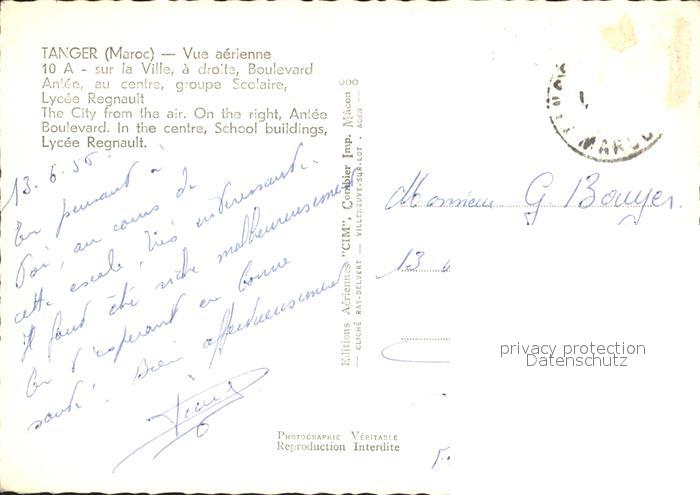 TANGER (Maroc) — Vue aérienne
10 A - sur la Ville, à droite, Boulevard
Antée, au centre, groupe Scolaire,
Lycée Regnault
The City from the air. On the right, Antée
Boulevard. In the centre, School buildings,
Lycée Regnault.
13.6.55.
En pensant à
toi, au cours de
cette escale, très intéressante.
Il faut être riche malheureusement
En t'espérant en bonne
santé. Bien affectueusement
Editions Aériennes "CIM", Combier Imp. Mâcon
— CLICHÉ RAY-DELVERT — VILLENEUVE-SUR-LOT - AGEN —
MAROC
Monsieur G. Bouyer.
13
privacy protection
Datenschutz
PHOTOGRAPHIE VÉRITABLE
Reproduction Interdite